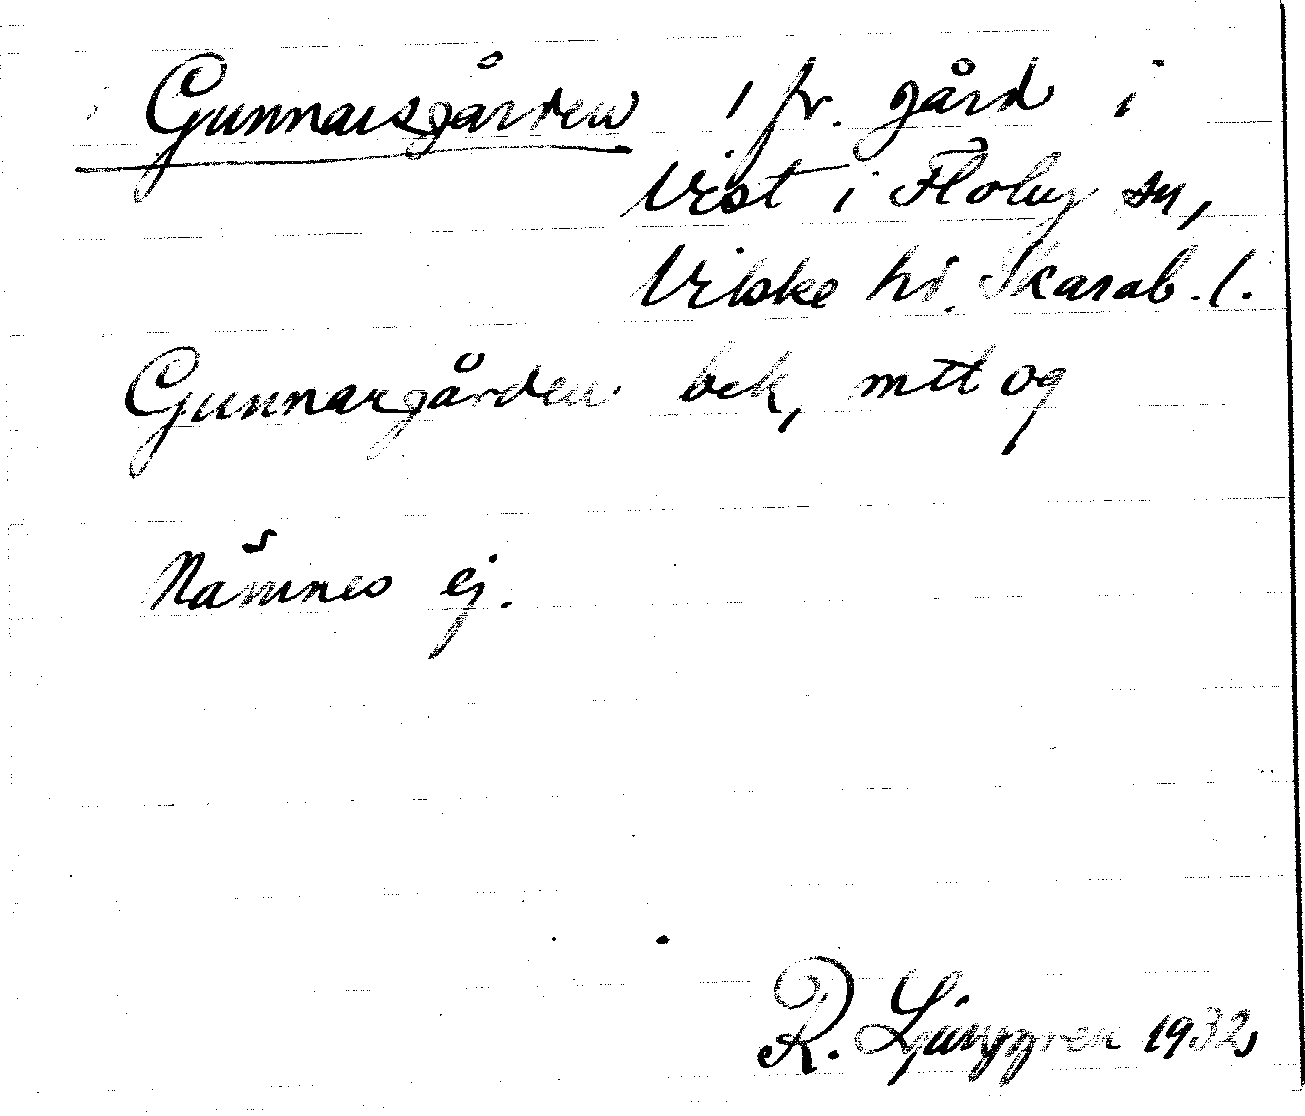 Gunnarsgården 1 fr. gård i
Vist i Floby sn,
Vilske hd. Skarab. l.
Gunnargården bek, mtl og
Nämnes ej.
R. Ljunggren 1932